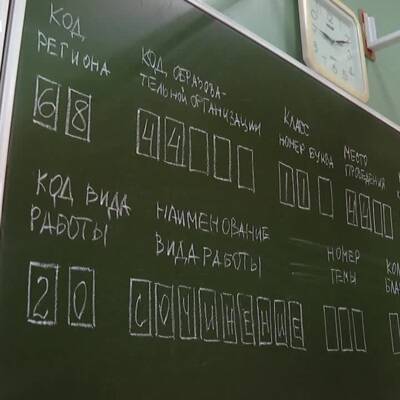 КОД
РЕГИОНА
68
КОД ОБРАЗОВА-
ТЕЛЬНОЙ ОРГАНИЗАЦИИ
44
КЛАСС
НОМЕР БУКВА
11
МЕСТО
ПРОВЕДЕНИЯ
44
КОД ВИДА
РАБОТЫ
20
НАИМЕНОВАНИЕ
ВИДА РАБОТЫ
СОЧИНЕНИЕ
НОМЕР
ТЕМЫ